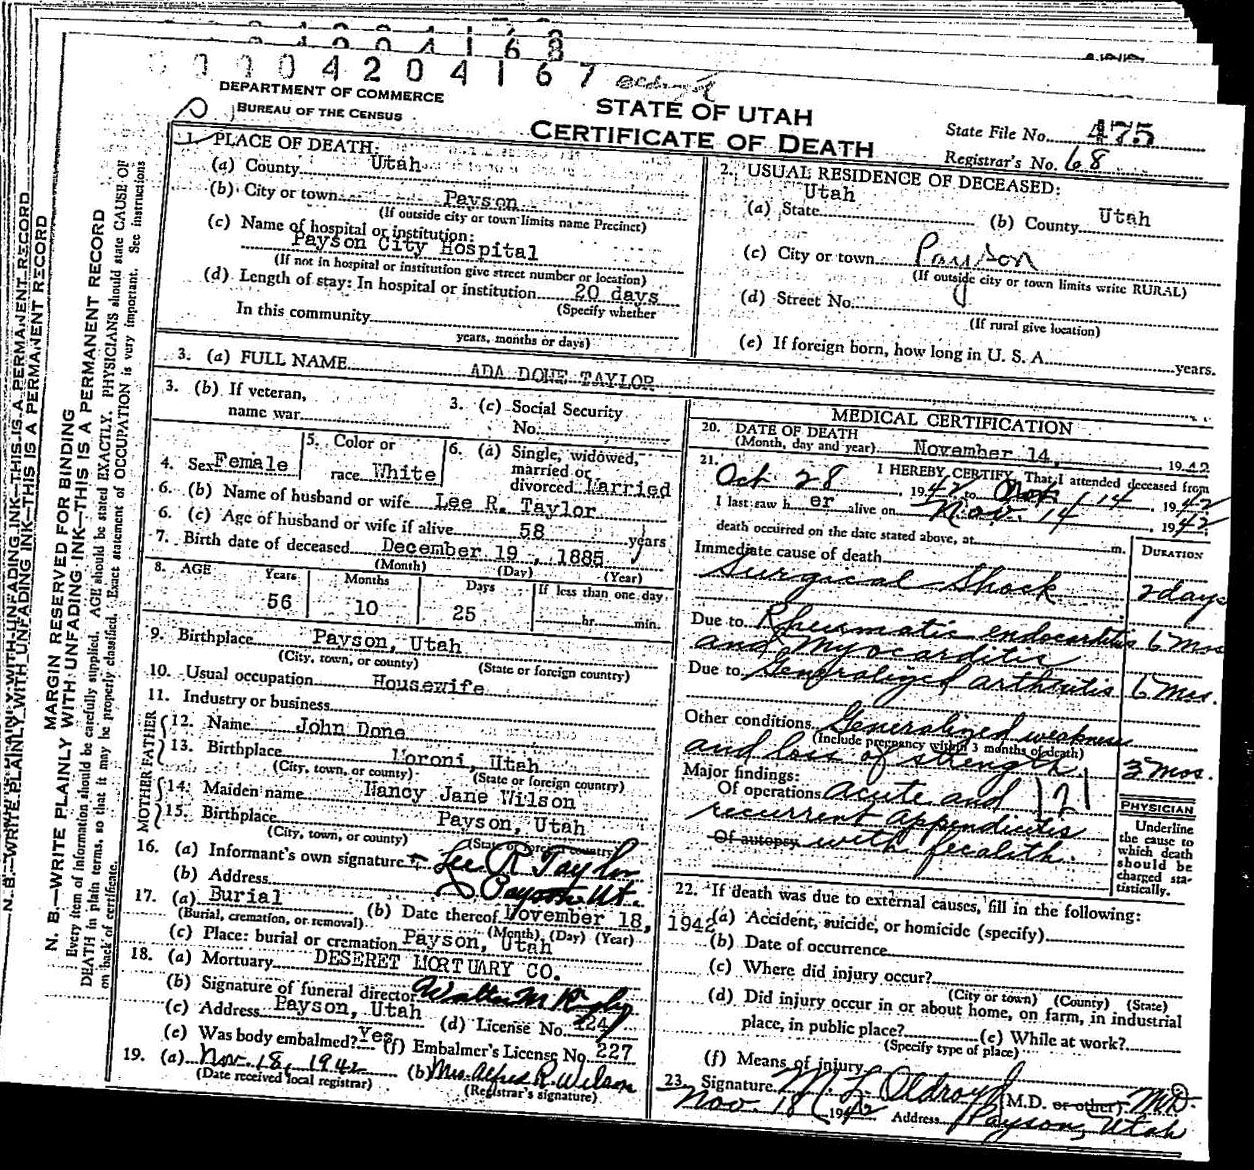 0 0 0 4 2 0 4 1 6 7
DEPARTMENT OF COMMERCE
BUREAU OF THE CENSUS
STATE OF UTAH
CERTIFICATE OF DEATH
State File No. 475
Registrar's No. 68
1. PLACE OF DEATH:
(a) County Utah
(b) City or town Payson
(If outside city or town limits name Precinct)
(c) Name of hospital or institution:
Payson City Hospital
(If not in hospital or institution give street number or location)
(d) Length of stay: In hospital or institution 20 days
(Specify whether
In this community
years, months or days)
2. USUAL RESIDENCE OF DECEASED:
(a) State Utah (b) County Utah
(c) City or town Payson
(If outside city or town limits write RURAL)
(d) Street No.
(If rural give location)
(e) If foreign born, how long in U. S. A. years.
3. (a) FULL NAME ADA DONE TAYLOR
3. (b) If veteran,
name war
3. (c) Social Security
No.
4. Sex Female
5. Color or
race White
6. (a) Single, widowed,
married or
divorced Married
6. (b) Name of husband or wife Lee R. Taylor
6. (c) Age of husband or wife if alive 58 years
7. Birth date of deceased December 19, 1885
(Month) (Day) (Year)
8. AGE Years Months Days If less than one day
56 10 25 hr. min.
9. Birthplace Payson, Utah
(City, town, or county) (State or foreign country)
10. Usual occupation Housewife
11. Industry or business
FATHER
12. Name John Done
13. Birthplace Moroni, Utah
(City, town, or county) (State or foreign country)
MOTHER
14. Maiden name Nancy Jane Wilson
15. Birthplace Payson, Utah
(City, town, or county) (State or foreign country)
16. (a) Informant's own signature Lee R Taylor
(b) Address Payson Ut.
17. (a) Burial (b) Date thereof November 18, 1942
(Burial, cremation, or removal) (Month) (Day) (Year)
(c) Place: burial or cremation Payson, Utah
18. (a) Mortuary DESERET MORTUARY CO.
(b) Signature of funeral director Walter M
(c) Address Payson, Utah (d) License No.
(e) Was body embalmed? Yes (f) Embalmer's License No. 227
19. (a) Nov. 18, 1942 (b) Mrs. Alfred R. Wilson
(Date received local registrar) (Registrar's signature)
MEDICAL CERTIFICATION
20. DATE OF DEATH
(Month, day and year) November 14, 1942
21. I HEREBY CERTIFY That I attended deceased from
Oct. 28, 1942 to Nov. 14, 1942
I last saw h er alive on Nov. 14 1942
death occurred on the date stated above, at m.
DURATION
Immediate cause of death
Surgical Shock 2 days
Due to Rheumatic endocarditis 6 Mos
and Myocarditis
Due to Generalized arthritis 6 Mos.
Other conditions Generalized weakness
(Include pregnancy within 3 months of death)
and loss of strength 3 Mos.
Major findings:
Of operations Acute and 121
recurrent appendicitis
Of autopsy with fecalith.
PHYSICIAN
Underline
the cause to
which death
should be
charged sta-
tistically.
22. If death was due to external causes, fill in the following:
(a) Accident, suicide, or homicide (specify)
(b) Date of occurrence
(c) Where did injury occur?
(City or town) (County) (State)
(d) Did injury occur in or about home, on farm, in industrial
place, in public place? (e) While at work?
(Specify type of place)
(f) Means of injury
23. Signature M. L Oldroyd (M.D. or other) M.D.
Nov. 18 1942 Address Payson, Utah
N. B.—WRITE PLAINLY WITH UNFADING INK—THIS IS A PERMANENT RECORD
MARGIN RESERVED FOR BINDING
N. B.—WRITE PLAINLY WITH UNFADING INK—THIS IS A PERMANENT RECORD
Every item of information should be carefully supplied. AGE should be stated EXACTLY. PHYSICIANS should state CAUSE OF
DEATH in plain terms, so that it may be properly classified. Exact statement of OCCUPATION is very important. See instructions
on back of certificate.